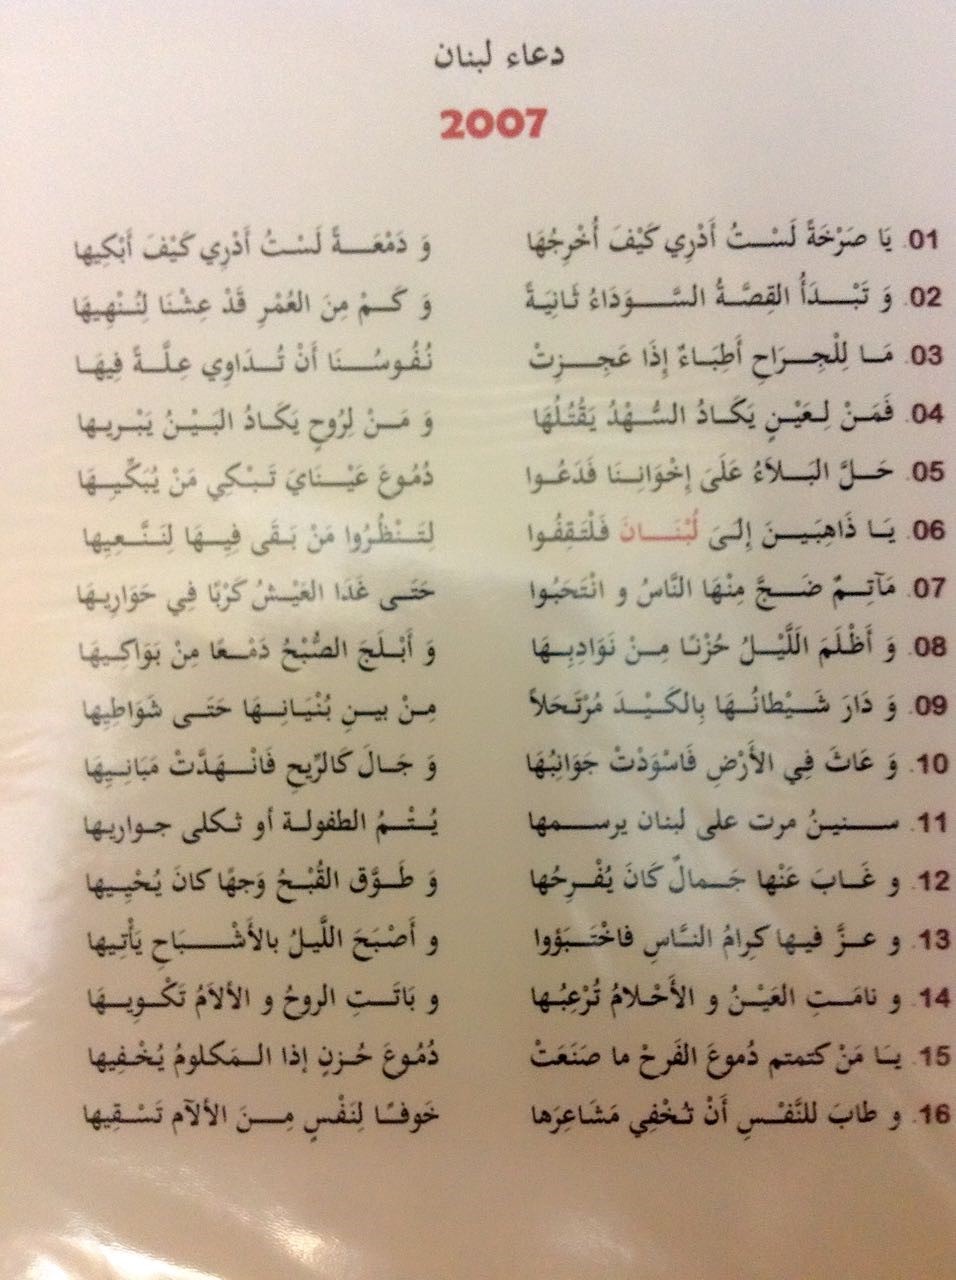 دعاء لبنان
2007
01. يَا صَرْخَةً لَسْتُ أَدْرِي كَيْفَ أُخْرِجُهَا وَ دَمْعَةً لَسْتُ أَدْرِي كَيْفَ أَبْكِيها
02. وَ تَبْدَأُ القِصَّةُ السَّوَدَاءُ ثَانِيَةً وَ كَمْ مِنَ العُمْرِ قَدْ عِشْنَا لِنُنْهِيهَا
03. مَا لِلْجِرَاحِ أَطِبَاءٌ إِذَا عَجِزِتْ نُفُوسُنَا أَنْ تُدَاوِي عِلَّةً فِيهَا
04. فَمَنْ لِعَيْنٍ يَكَادُ السُّهْدُ يَقْتُلُهَا وَ مَنْ لِرُوحٍ يَكَادُ البَيْنُ يَبْرِيها
05. حَلَّ البَلاَءُ عَلَىَ إِخْوَانِنَا فَدَعُوا دُمُوعَ عَيْنَايَ تَبْكِي مَنْ يُبَكِّيهَا
06. يَا ذَاهِبَينَ إِلَىَ لُبْنَانَ فَلْتَقِفُوا لِتَنْظُرُوا مَنْ بَقَى فِيهَا لِنَنَّعِيها
07. مَآتِمٌ ضَجَّ مِنْهَا النَّاسُ و انْتَحَبُوا حَتَى غَدَا العَيْشُ كَرْبًا فِي حَوَارِيهَا
08. وَ أَظْلَمَ الَلَّيْلُ حُزْنًا مِنْ نَوَادِبِهَا وَ أَبْلَجَ الصُّبْحُ دَمْعًا مِنْ بَوَاكِيهَا
09. وَ دَارَ شَيْطانُهَا بِالكَيْدَ مُرْتَحَلاً مِنْ بينِ بُنْيَانِهَا حَتَى شَوَاطِيِها
10. وَ عَاثَ فِي الأَرْضِ فَاسْوَدْتْ جَوَانِبُهَا وَ جَالَ كَالرِّيحِ فَانْهَدَّتْ مَبَانِيِهَا
11. سنينُ مرت على لبنان يرسمها يُتْمُ الطفولة أو ثكلى جواريها
12. و غَابَ عَنْها جَمالٌ كَانَ يُفْرِحُها وَ طَوَّق القُبْحُ وَجهًا كانَ يُحْيِيها
13. و عزَّ فيها كِرامُ النَّاسِ فاخْتَبَؤوا و أَصْبَحَ اللَّيلُ بالأَشْبَاحِ يَأْتِيها
14. و نامَتِ العَيْنُ و الأَحْلامُ تُرْعِبُها و بَاتَتِ الروحُ و الألاَمُ تَكْوِيهَا
15. يَا مَنْ كتمتم دُموعَ الفَرحْ ما صَنَعَتْ دُمُوعَ حُزنٍ إذا المَكلومُ يُخْفِيها
16. و طابَ للنَّفْسِ أَنْ تُخْفِي مَشَاعِرَها خَوفًا لِنَفْسٍ مِنَ الألآم تَسْقِيها